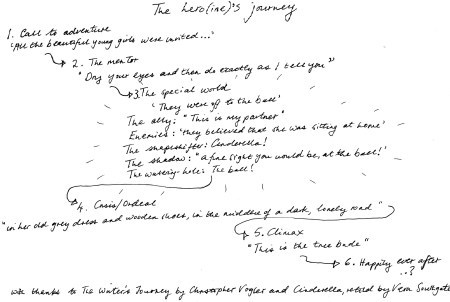 The hero(ine)'s journey
1. Call to adventure
'All the beautiful young girls were invited...'
2. The mentor
"Dry your eyes and then do exactly as I tell you"
3. The special world
'They were off to the ball'
The ally: "This is my partner"
Enemies: 'they believed that she was sitting at home'
The shapeshifter: Cinderella!
The shadow: "a fine sight you would be, at the ball!'
The watering-hole: The ball!
4. Crisis/Ordeal
"in her old grey dress and wooden shoes, in the middle of a dark, lonely road"
5. Climax
"This is the true bride"
6. Happily ever after
..?
with thanks to The Writer's Journey by Christopher Vogler and Cinderella, retold by Vera Southgate